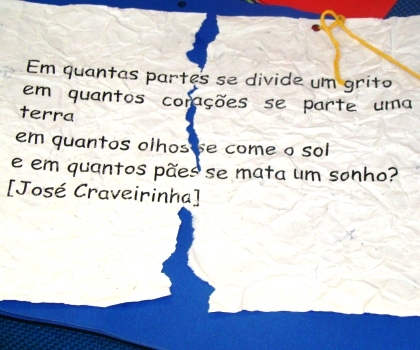 Em quantas partes se divide um grito
em quantos corações se parte uma
terra
em quantos olhos se come o sol
e em quantos pães se mata um sonho?
[José Craveirinha]